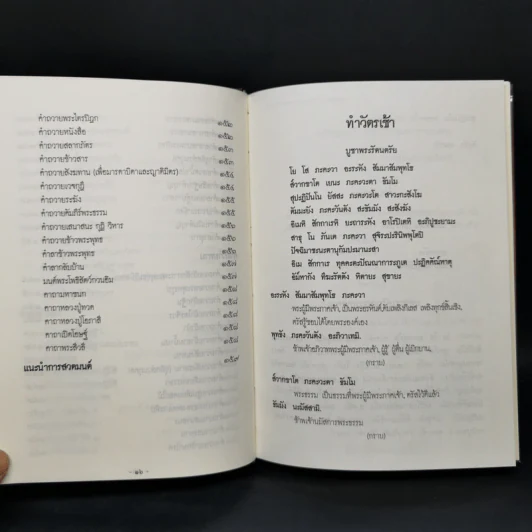 คำถวายพระไตรปิฎก ๑๕๒
คำถวายหนังสือ ๑๕๒
คำถวายสลากภัตร ๑๕๓
คำถวายข้าวสาร ๑๕๓
คำถวายสังฆทาน (เพื่อมารดาบิดาและญาติมิตร) ๑๕๔
คำถวายเวจกุฎี
คำถวายระฆัง
คำถวายคัมภีร์พระธรรม
คำถวายเสนาสนะ กุฎี วิหาร
คำถวายข้าวพระพุทธ
คำลาข้าวพระพุทธ
คำลากลับบ้าน
มนต์พระโพธิสัตว์กวนอิม
คาถามหาชนก
คาถาหลวงปู่ทวด
คาถาหลวงปู่โอภาสี
คาถาเปิดโอษฐ์
คาถาพระสีวลี
แนะนำการสวดมนต์ ๑๕๙
ทำวัตรเช้า
บูชาพระรัตนตรัย
โย โส ภะคะวา อะระหัง สัมมาสัมพุทโธ
ส๎วากขาโต เยนะ ภะคะวะตา ธัมโม
สุปะฏิปันโน ยัสสะ ภะคะวะโต สาวะกะสังโฆ
ตัมมะยัง ภะคะวันตัง สะธัมมัง สะสังฆัง
อิเมหิ สักกาเรหิ ยะถาระหัง อาโรปิเตหิ อะภิปูชะยามะ
สาธุ โน ภันเต ภะคะวา สุจิระปะรินิพพุโตปิ
ปัจฉิมาชะนะตานุกัมปะมานะสา
อิเม สักกาเร ทุคคะตะปัณณาการะภูเต ปะฏิคคัณหาตุ
อัมหากัง ทีฆะรัตตัง หิตายะ สุขายะ
อะระหัง สัมมาสัมพุทโธ ภะคะวา
พระผู้มีพระภาคเจ้า, เป็นพระอรหันต์,ดับเพลิงกิเลส เพลิงทุกข์สิ้นเชิง,
ตรัสรู้ชอบได้โดยพระองค์เอง
พุทธัง ภะคะวันตัง อะภิวาเทมิ.
ข้าพเจ้าอภิวาทพระผู้มีพระภาคเจ้า, ผู้รู้ ผู้ตื่น ผู้เบิกบาน,
(กราบ)
ส๎วากขาโต ภะคะวะตา ธัมโม
พระธรรม เป็นธรรมที่พระผู้มีพระภาคเจ้า, ตรัสไว้ดีแล้ว
ธัมมัง นะมัสสามิ.
ข้าพเจ้านมัสการพระธรรม
(กราบ)